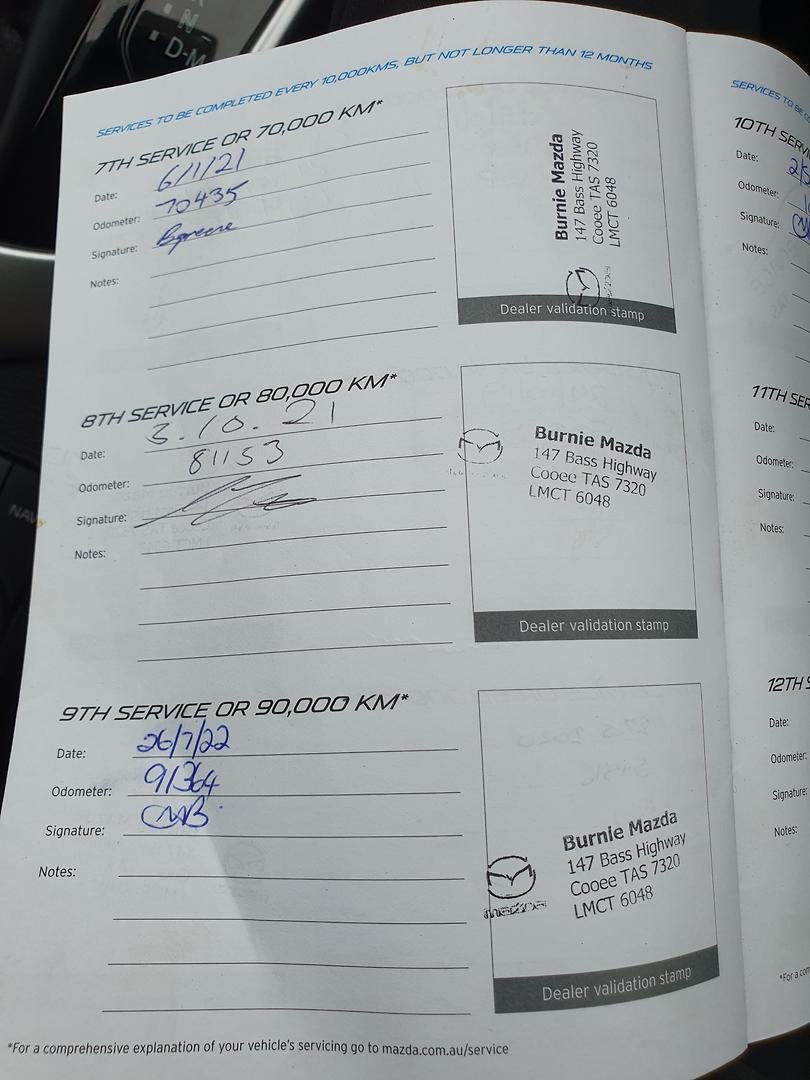 N
D-M
NAV
SERVICES TO BE COMPLETED EVERY 10,000KMS, BUT NOT LONGER THAN 12 MONTHS
7TH SERVICE OR 70,000 KM*
Date: 6/1/21
Odometer: 70435
Signature:
Notes:
Burnie Mazda
147 Bass Highway
Cooee TAS 7320
LMCT 6048
Dealer validation stamp
8TH SERVICE OR 80,000 KM*
Date: 3.10.21
Odometer: 81153
Signature:
Notes:
Burnie Mazda
147 Bass Highway
Cooee TAS 7320
LMCT 6048
Dealer validation stamp
9TH SERVICE OR 90,000 KM*
Date: 26/7/22
Odometer: 91364
Signature:
Notes:
mazda
Burnie Mazda
147 Bass Highway
Cooee TAS 7320
LMCT 6048
Dealer validation stamp
*For a comprehensive explanation of your vehicle's servicing go to mazda.com.au/service
SERVICES TO BE
10TH
Date:
Odometer:
Signature:
Notes:
11TH SER
Date:
Odometer:
Signature:
Notes:
12TH
Date:
Odometer:
Signature:
Notes:
*For a com